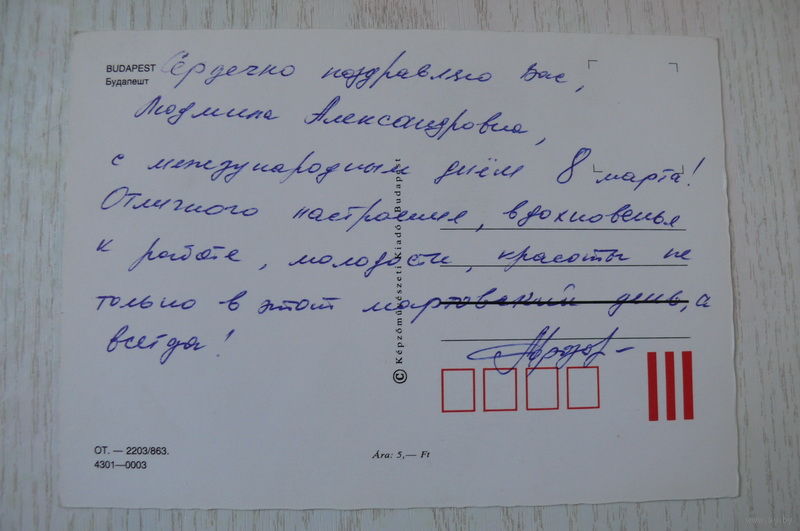 BUDAPEST
Будапешт
Сердечно поздравляю Вас,
Людмила Александровна,
с международным днём 8 марта!
Отличного настроения, вдохновенья
к работе, молодости, красоты не
только в этот мартовский день, а
всегда!
© Képzőművészeti Kiadó, Budapest
ОТ. — 2203/863.
4301—0003
Ára: 5,— Ft